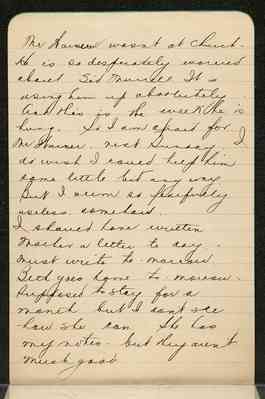 Mr Hanson wasn't at Church.
He is so desperately worried
about Sid Murrell It is
using him up absolutely
And this is the week he is
hung. So I am afraid for
Mr Hanson next Sunday. I
do wish I could help him
some little bit any way
But I seem so perfectly
useless somehow.
I should have written
Mother a letter to day.
must write to-morrow
Beth goes home to-morrow.
Supposed to stay for a
month but I don't see
how she can She has
my notes. but they aren't
much good